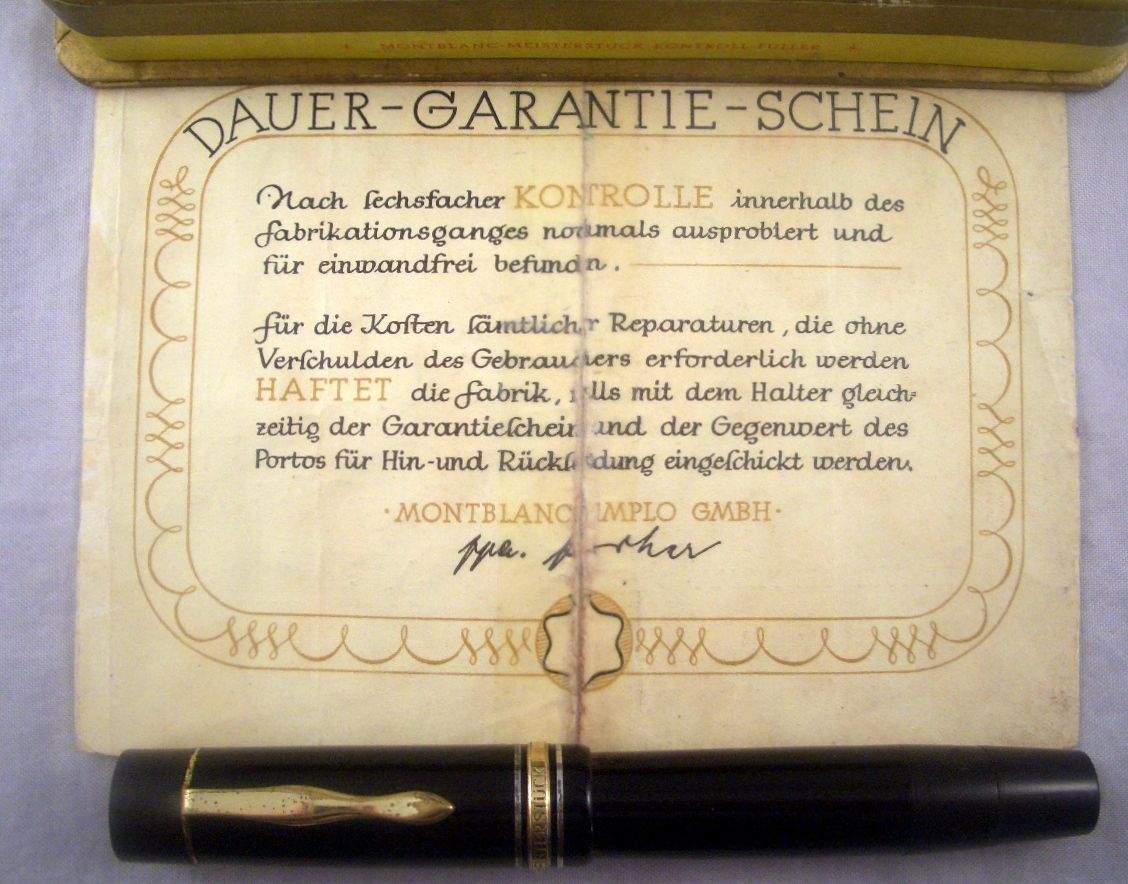 MONTBLANC-MEISTERSTÜCK KONTROLL-FÜLLER
DAUER-GARANTIE-SCHEIN
Nach ſechsfacher KONTROLLE innerhalb des
Fabrikationsganges nochmals ausprobiert und
für einwandfrei befunden.
Für die Koſten ſämtlicher Reparaturen, die ohne
Verſchulden des Gebrauchers erforderlich werden
HAFTET die Fabrik, falls mit dem Halter gleich-
zeitig der Garantieſchein und der Gegenwert des
Portos für Hin-und Rückſendung eingeſchickt werden.
·MONTBLANC SIMPLO GMBH·
ppa.